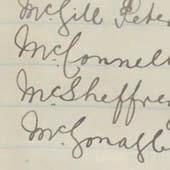 McGill Pete
McConnel
McSheffre
McGonagl